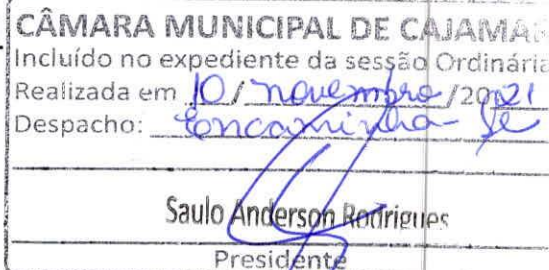 CÂMARA MUNICIPAL DE CAJAMAR
Incluído no expediente da sessão Ordinária
Realizada em 10/novembro/2021
Despacho: Encaminha-se
Saulo Anderson Rodrigues
Presidente